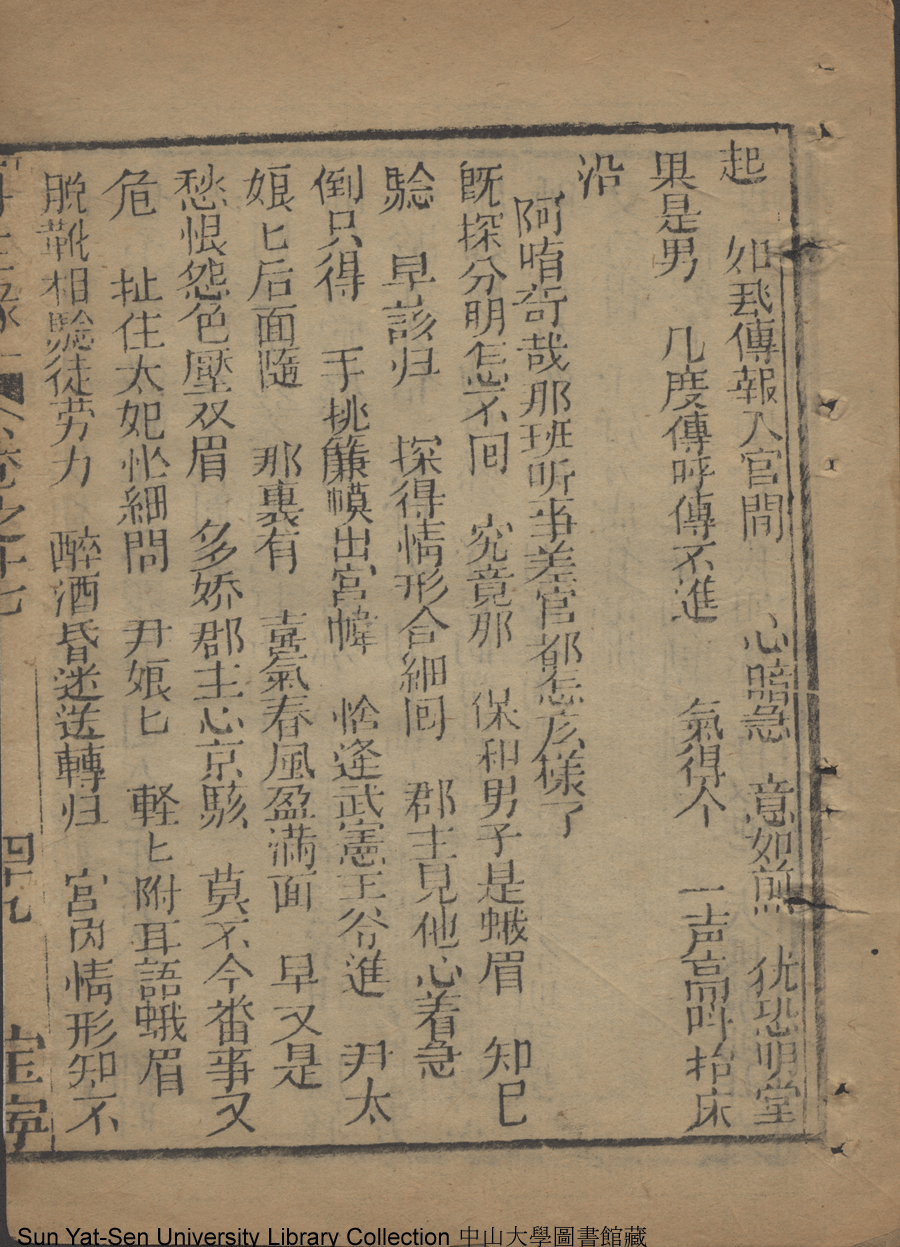 起　如飛傳報入宮間　心暗急　意如煎　犹恐明堂
果是男　几度傳呼傳不進　氣得个　一声高叫抬床
沿
阿唷奇哉那班听事差官都怎広樣了
既探分明怎不囘　究竟那　保和男子是蛾眉　知已
驗　早該归　探得情形合細囘　郡主見他心着急
倒只得　手挑簾幙出宮幃　恰逢武憲王爷進　尹太
娘匕后面隨　那裏有　喜氣春風盈満面　早又是
愁恨怨色壓双眉　多娇郡主心京駭　莫不今畨事又
危　扯住太妃忙細問　尹娘匕　軽匕附耳語蛾眉
脱靴相驗徒劳力　醉酒昏迷送轉归　宮内情形知不
卷之十七
四十九
宝寕
Sun Yat-Sen University Library Collection 中山大學圖書館藏